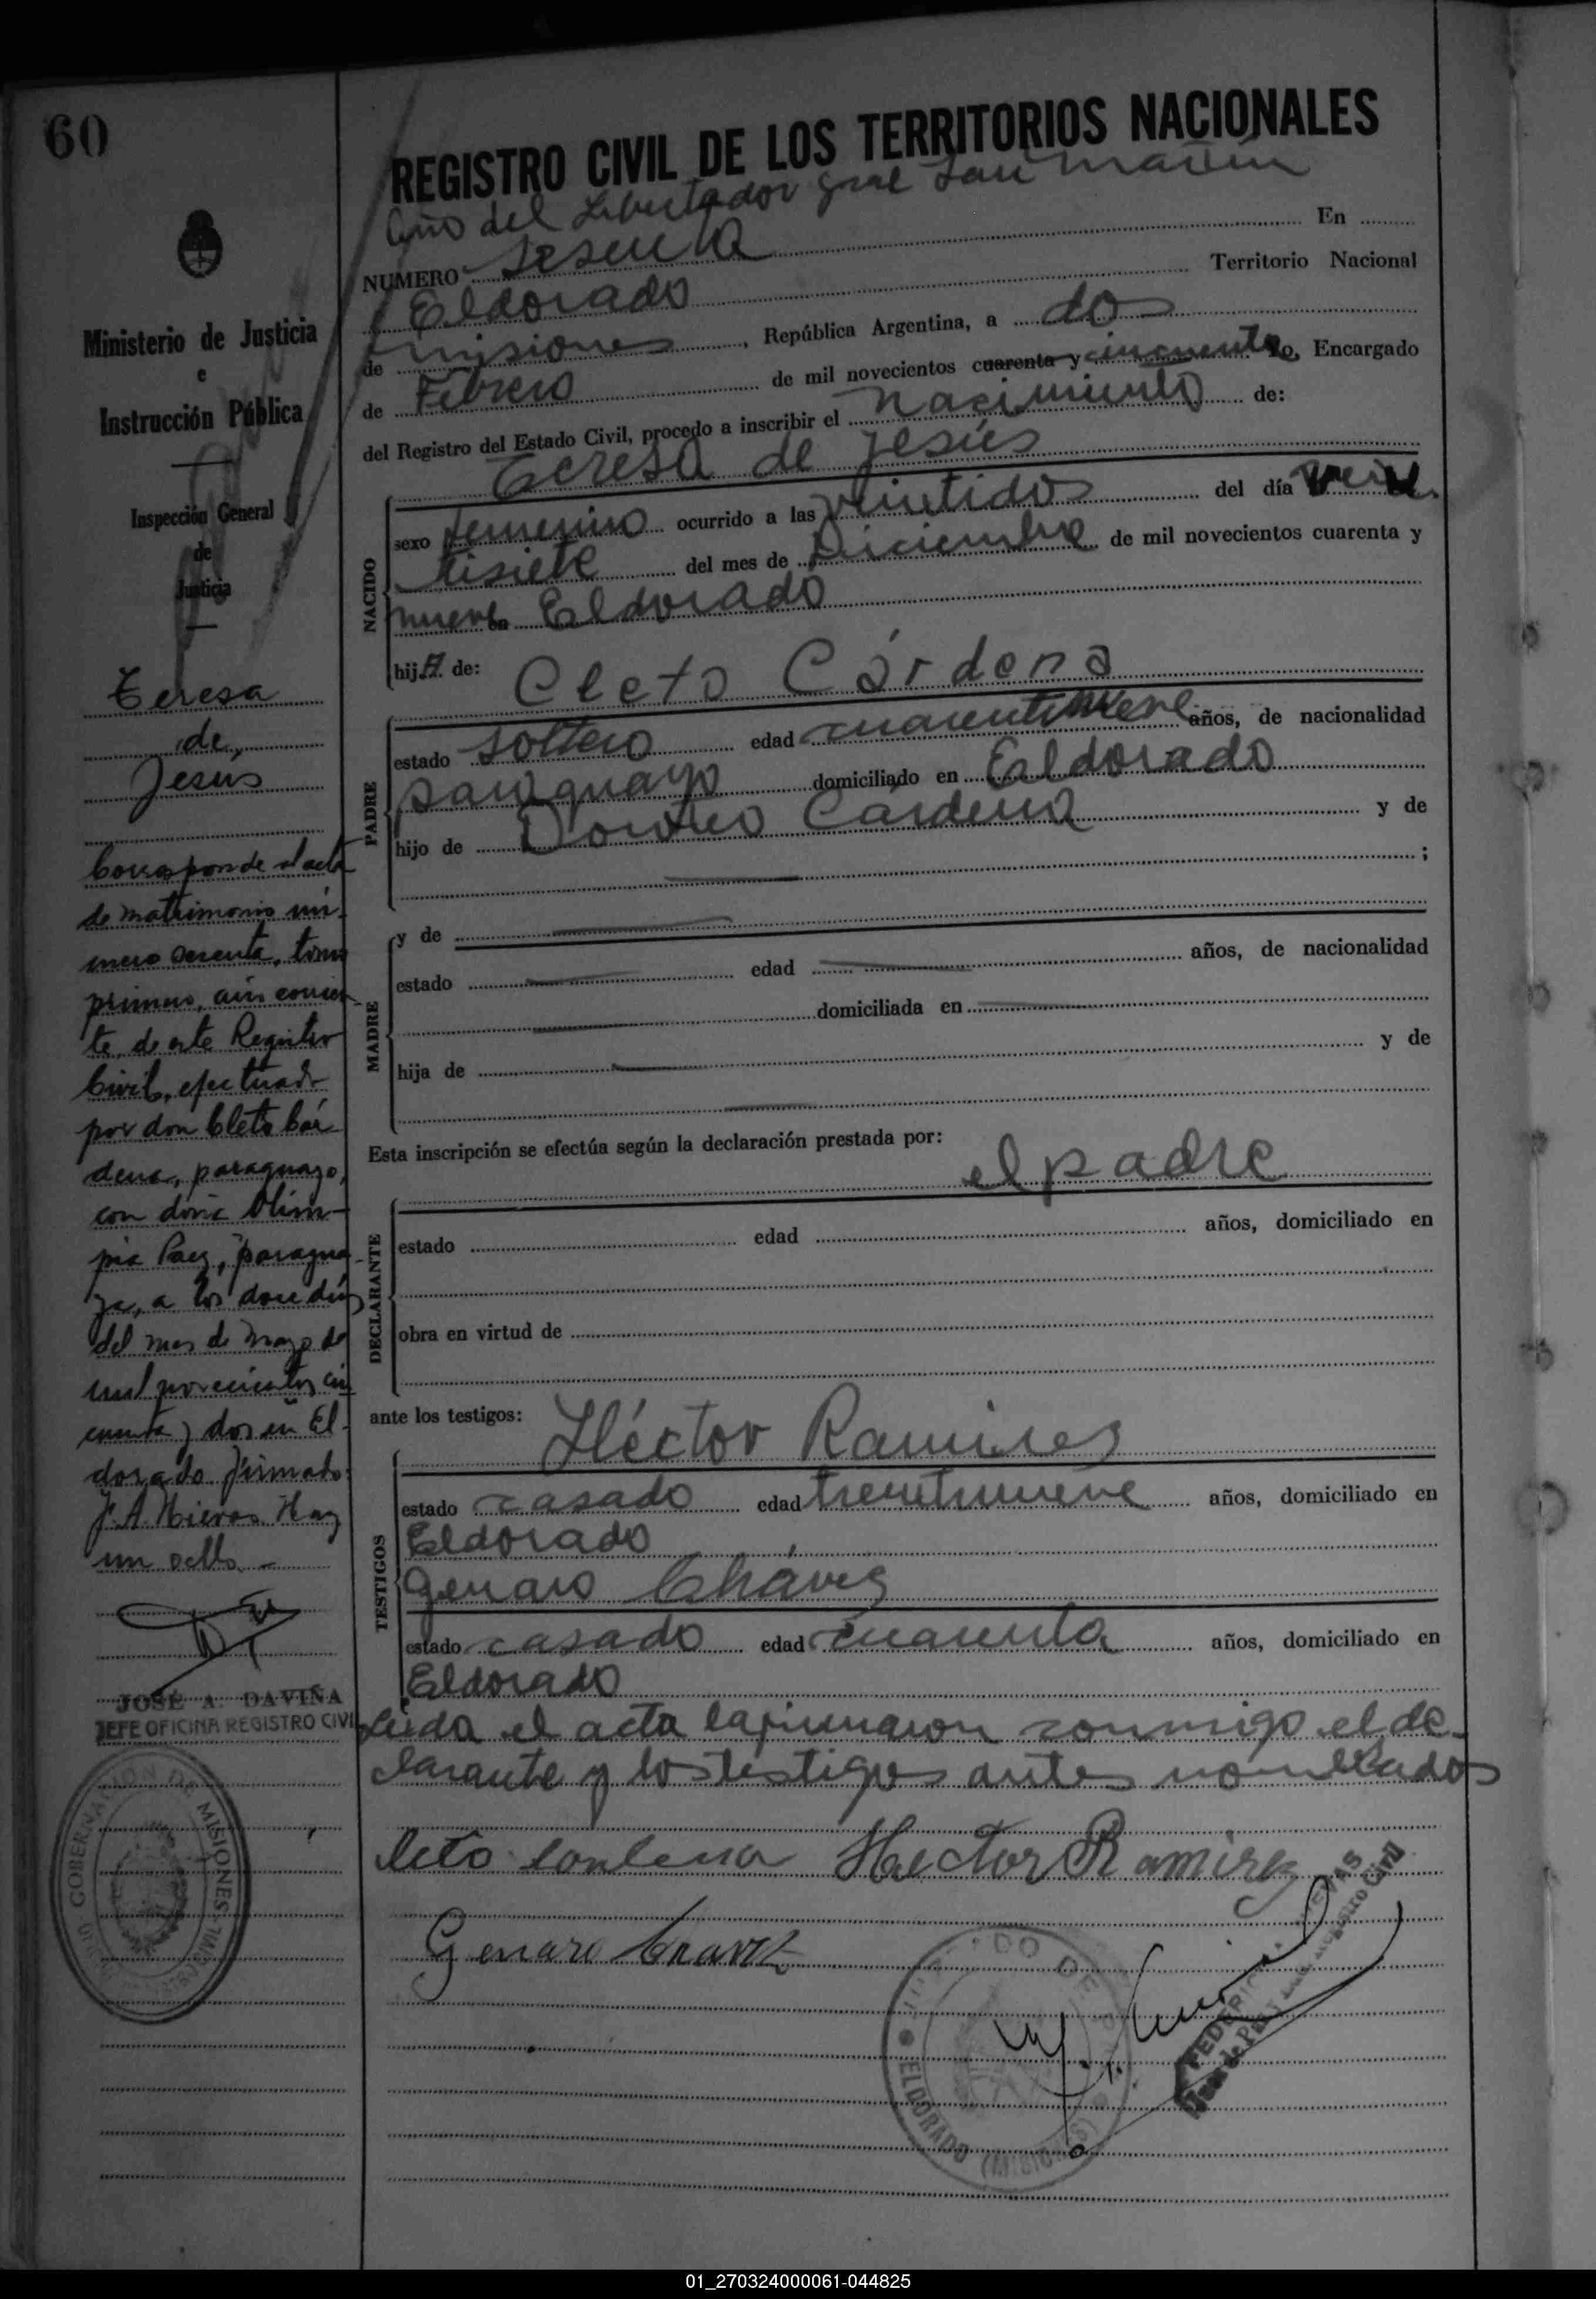 60
REGISTRO CIVIL DE LOS TERRITORIOS NACIONALES
Año del Libertador Gral San Martín
NUMERO Sesenta En
Eldorado Territorio Nacional
de Misiones, República Argentina, a dos
de Febrero de mil novecientos cuarenta y cincuenta Yo, Encargado
del Registro del Estado Civil, procedo a inscribir el nacimiento de:
Teresa de Jesús
NACIDO
sexo femenino ocurrido a las veintidos del día vein
tisiete del mes de Diciembre de mil novecientos cuarenta y
nueve en Eldorado
hija de: Cleto Cárdena
PADRE
estado soltero edad cuarentinueve años, de nacionalidad
paraguayo domiciliado en Eldorado
hijo de Doroteo Cárdena y de
;
y de
MADRE
estado edad años, de nacionalidad
domiciliada en
hija de y de
Esta inscripción se efectúa según la declaración prestada por:
el padre
DECLARANTE
estado edad años, domiciliado en
obra en virtud de
ante los testigos: Héctor Ramires
TESTIGOS
estado casado edad treintinueve años, domiciliado en
Eldorado
Genaro Cháves
estado casado edad cuarenta años, domiciliado en
Eldorado
Leida el acta la firmaron conmigo el de-
clarante y los testigos antes nombrados
Hector Ramirez
Genaro Chavez
ELDORADO (MISIONES)
Ministerio de Justicia
e
Instrucción Pública
Inspección General
de
Justicia
Teresa
de
Jesús
Corresponde al acta
de matrimonio nú-
mero sesenta, tomo
primero, año corrien-
te, de este Registro
Civil, efectuado
por don Cleto Cár
dena, paraguayo,
con doña Olim-
pia Paez, paragua-
ya, a los doce días
del mes de mayo de
mil novecientos cin
cuenta y dos en El-
dorado. Firmado:
F. A. Nievas. Hay
un sello.-
JOSÉ A. DAVIÑA
JEFE OFICINA REGISTRO CIVIL
GOBERNACION DE MISIONES
01_270324000061-044825